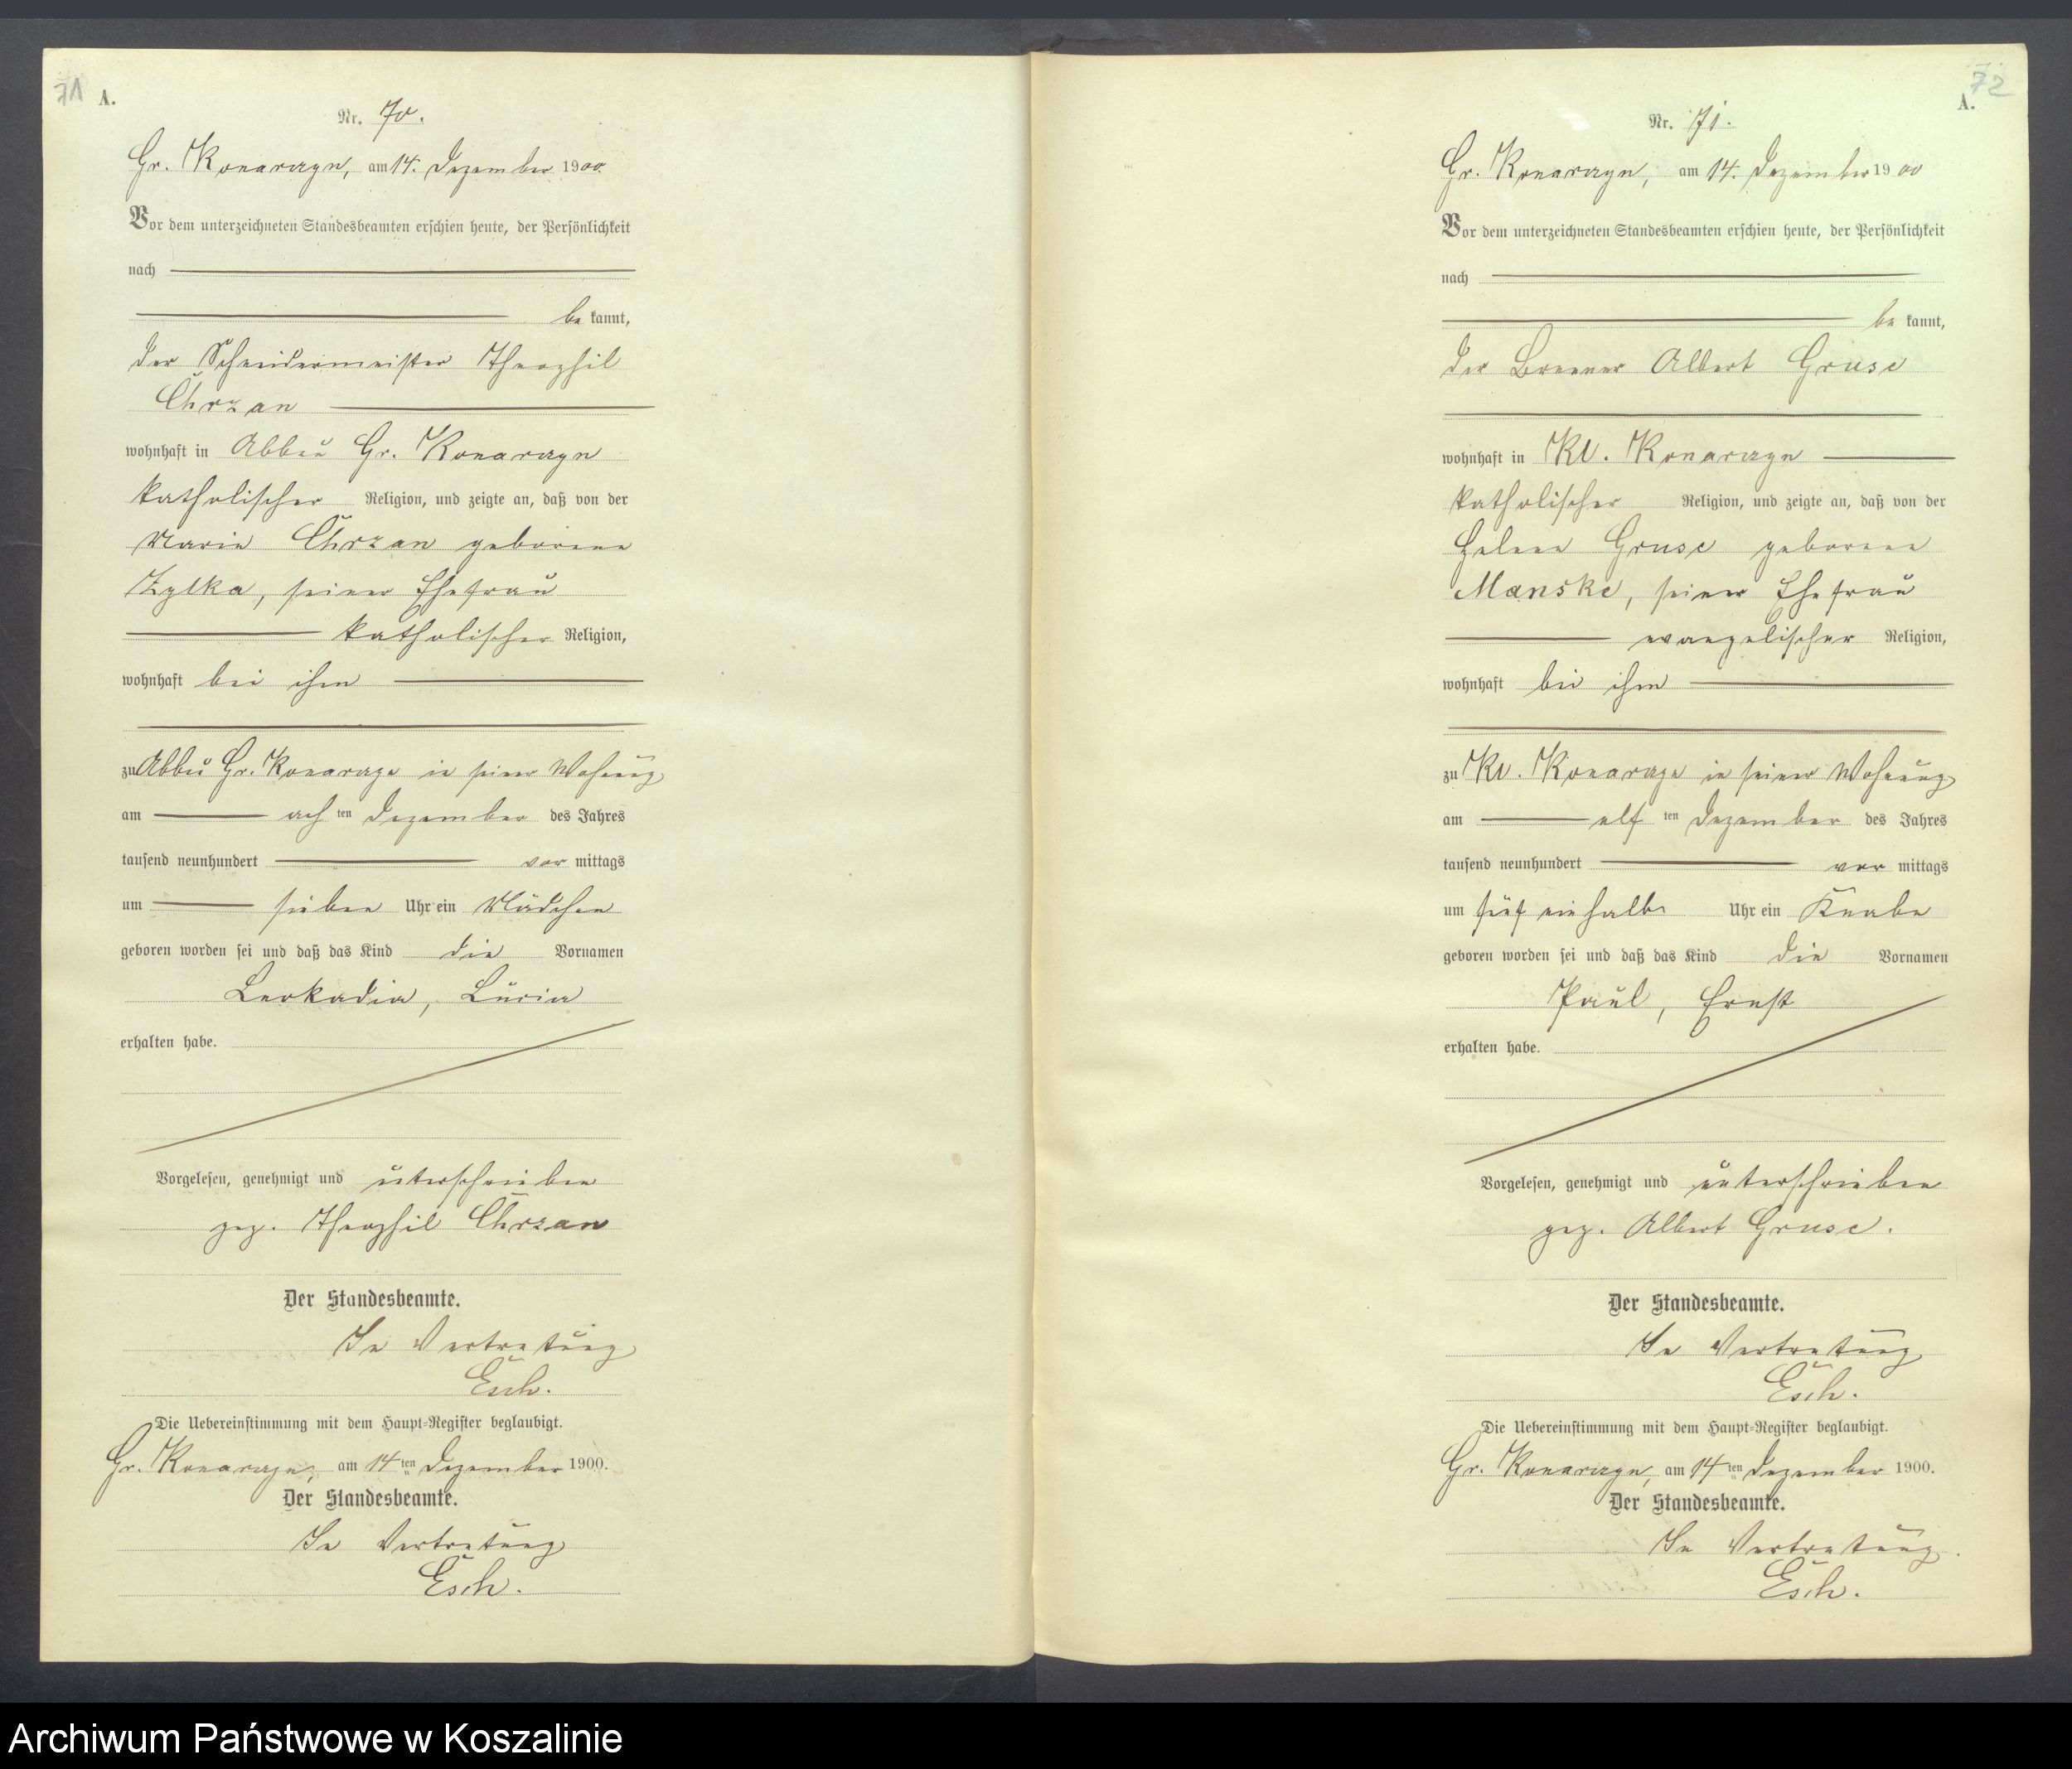 71
A.
Nr. 70.
Gr. Konarczyn, am 14. Dezember 1900.
Vor dem unterzeichneten Standesbeamten erschien heute, der Persönlichkeit
nach
be kannt,
der Schneidermeister Theophil
Chrzan
wohnhaft in Abbau Gr. Konarczyn
katholischer Religion, und zeigte an, daß von der
Marie Chrzan geborene
Zylka, seiner Ehefrau
katholischer Religion,
wohnhaft bei ihm
zu Abbau Gr. Konarczyn in seiner Wohnung
am ach ten Dezember des Jahres
tausend neunhundert vor mittags
um sieben Uhr ein Mädchen
geboren worden sei und daß das Kind die Vornamen
Leokadia, Lucia
erhalten habe.
Vorgelesen, genehmigt und unterschrieben
gez. Theophil Chrzan
Der Standesbeamte.
In Vertretung
Esch.
Die Uebereinstimmung mit dem Haupt-Register beglaubigt.
Gr. Konarczyn, am 14 ten Dezember 1900.
Der Standesbeamte.
In Vertretung
Esch.
72
A.
Nr. 71.
Gr. Konarczyn, am 14. Dezember 1900
Vor dem unterzeichneten Standesbeamten erschien heute, der Persönlichkeit
nach
be kannt,
der Brenner Albert Gruse
wohnhaft in Kl. Konarczyn
katholischer Religion, und zeigte an, daß von der
Helene Gruse geborene
Manske, seiner Ehefrau
evangelischer Religion,
wohnhaft bei ihm
zu Kl. Konarczyn in seiner Wohnung
am elf ten Dezember des Jahres
tausend neunhundert vor mittags
um fünf einhalb Uhr ein Knabe
geboren worden sei und daß das Kind die Vornamen
Paul, Ernst
erhalten habe.
Vorgelesen, genehmigt und unterschrieben
gez. Albert Gruse.
Der Standesbeamte.
In Vertretung
Esch.
Die Uebereinstimmung mit dem Haupt-Register beglaubigt.
Gr. Konarczyn, am 14 ten Dezember 1900.
Der Standesbeamte.
In Vertretung.
Esch.
Archiwum Państwowe w Koszalinie